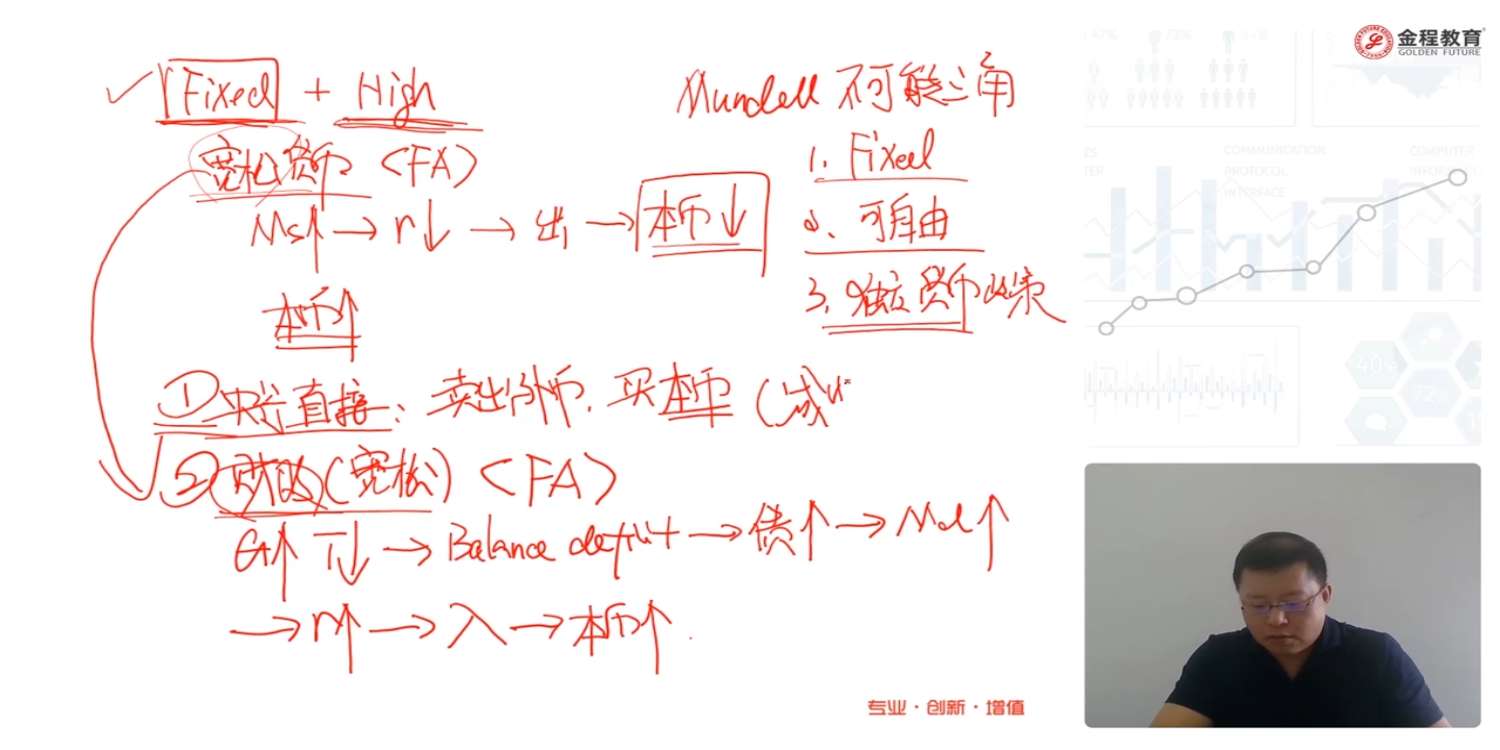 Fixed + High
宽松货币 <FA>
Ms↑ → r↓ → 出 → 本币↓
本币↑
① 央行直接: 卖出外币, 买本币 (减
② 财政 (宽松) <FA>
G↑ T↓ → Balance deficit → 债↑ → Md↑
→ r↑ → 入 → 本币↑
Mundell 不可能三角
1. Fixed
2、可自由
3. 独立货币政策
金程教育
GOLDEN FUTURE
COMMUNICATION
PROTOCOL
INTERFACE
COMPUTER
40%
72%
专业·创新·增值